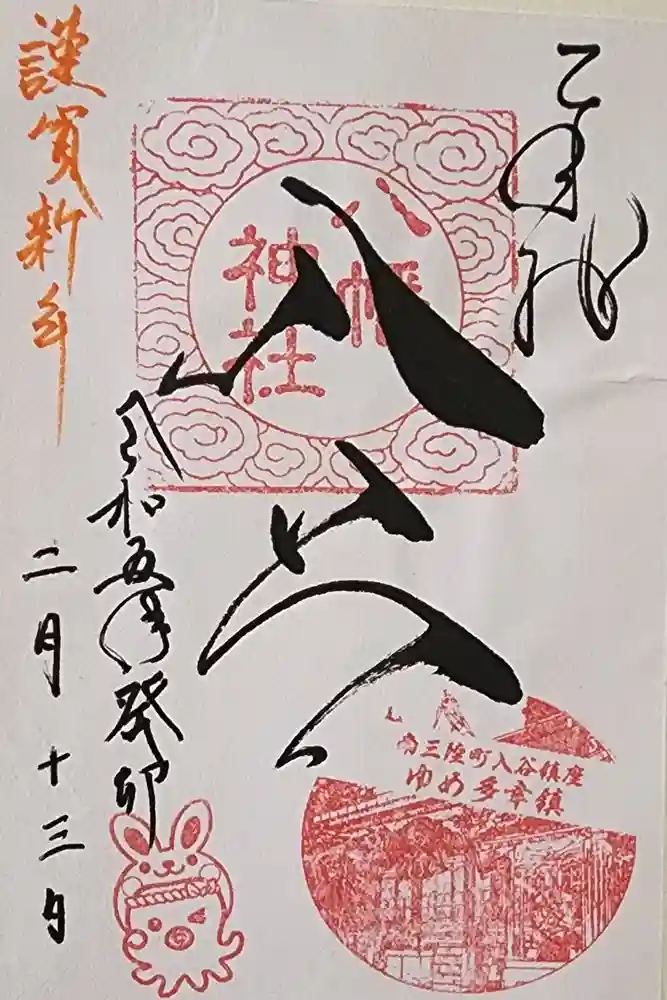 奉拝
八幡
神社
八幡
謹賀新年
令和五年癸卯
二月十三日
南三陸町入谷鎮座
ゆめ多幸鎮